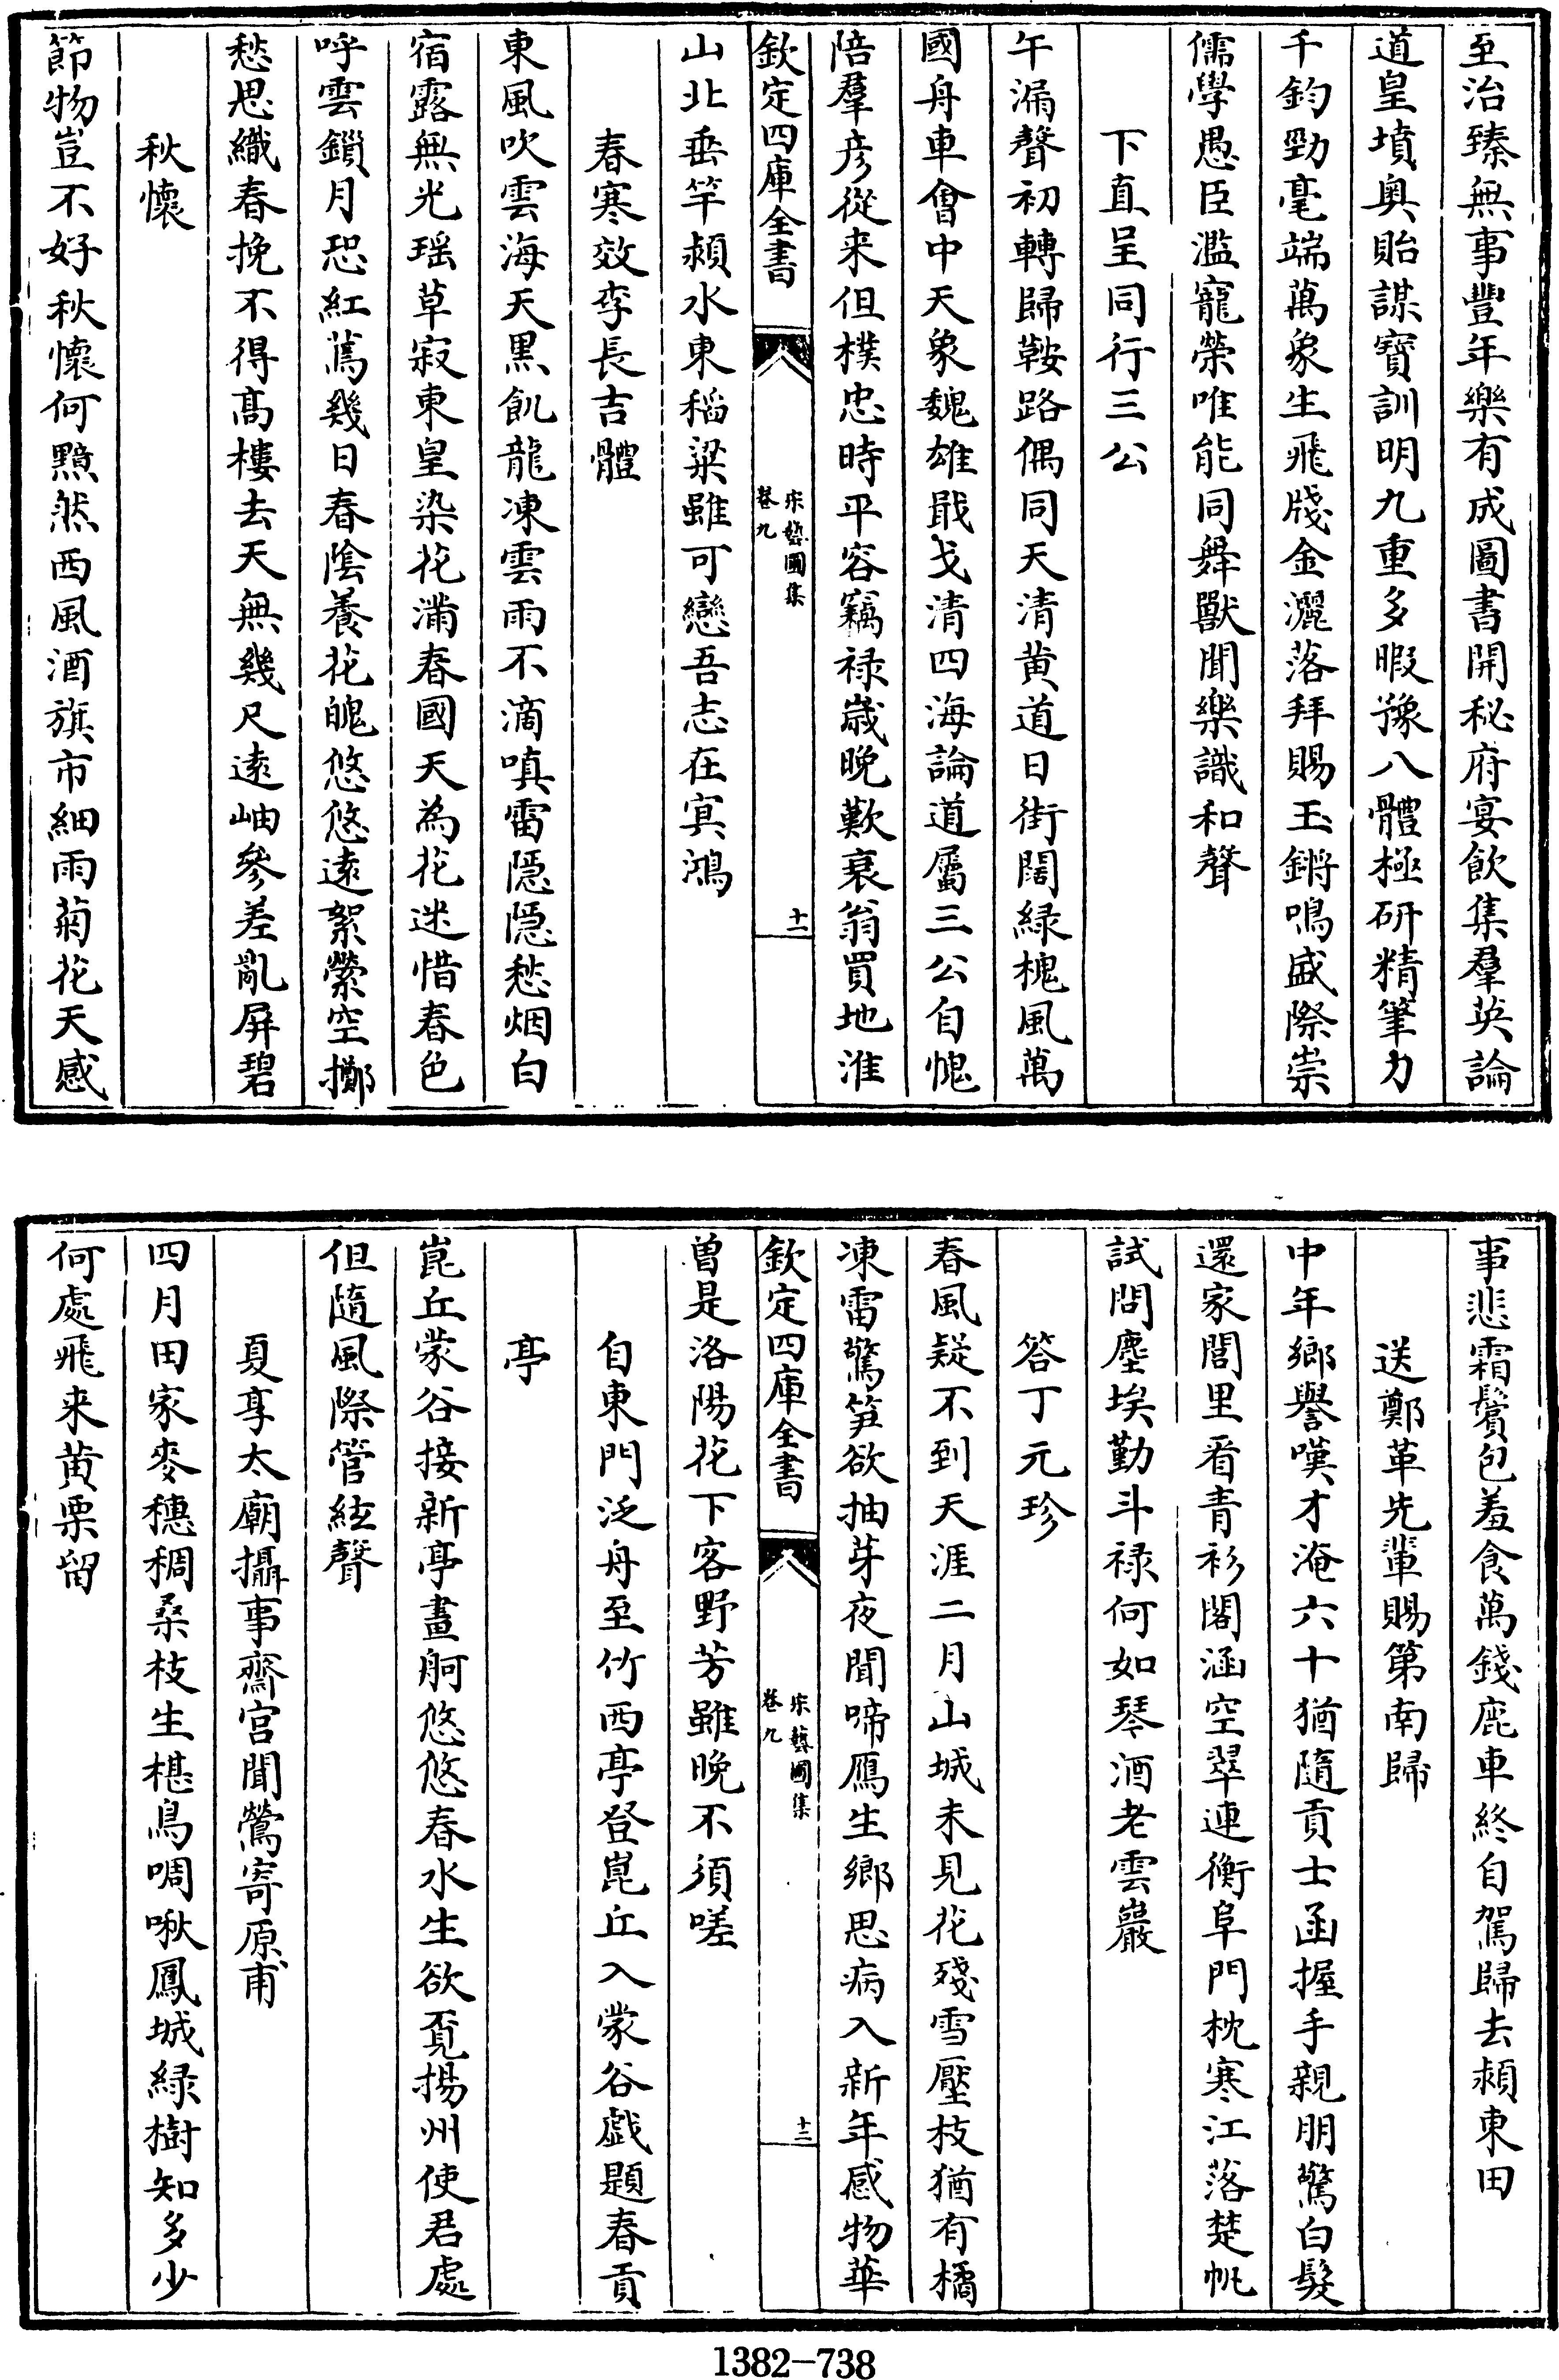 至治臻無事豐年樂有成圖書開秘府宴飲集羣英論
道皇墳奥貽謀寳訓明九重多暇豫八體極研精筆力
千鈞勁毫端萬象生飛牋金灑落拜賜玉鏘鳴盛際崇
儒學愚臣濫寵榮唯能同舞獸聞樂識和聲
下直呈同行三公
午漏聲初轉歸鞍路偶同天清黄道日街闊緑槐風萬
國舟車會中天象魏雄戢戈清四海論道屬三公自愧
陪羣彦從来但樸忠時平容竊禄歳晚歎衰翁買地淮
欽定四庫全書
宋藝圃集
卷九
十一
山北垂竿潁水東稻粱雖可戀吾志在冥鴻
春寒效李長吉體
東風吹雲海天黒飢龍凍雲雨不滴嗔雷隠隠愁烟白
宿露無光瑶草寂東皇染花滿春國天為花迷惜春色
呼雲鎖月恐紅蔫幾日春陰養花魄悠悠逺絮縈空擲
愁思織春挽不得髙樓去天無幾尺逺岫參差亂屏碧
秋懷
節物豈不好秋懷何黯然西風酒旗市細雨菊花天感
事悲霜鬢包羞食萬錢鹿車終自駕歸去潁東田
送鄭革先輩賜第南歸
中年鄉譽嘆才淹六十猶隨貢士函握手親朋驚白髮
還家閭里看青衫閣涵空翠連衡阜門枕寒江落楚帆
試問塵埃勤斗禄何如琴酒老雲巖
答丁元珍
春風疑不到天涯二月山城未見花殘雪壓枝猶有橘
凍雷驚笋欲抽芽夜聞啼鴈生鄉思病入新年感物華
欽定四庫全書
宋藝圃集
卷九
十二
曽是洛陽花下客野芳雖晚不須嗟
自東門泛舟至竹西亭登崑丘入蒙谷戯題春貢
亭
崑丘蒙谷接新亭畫舸悠悠春水生欲覔揚州使君處
但隨風際管絃聲
夏享太廟攝事齋宫聞鶯寄原甫
四月田家麥穗稠桑枝生椹鳥啁啾鳳城緑樹知多少
何處飛来黄栗留
1382—738